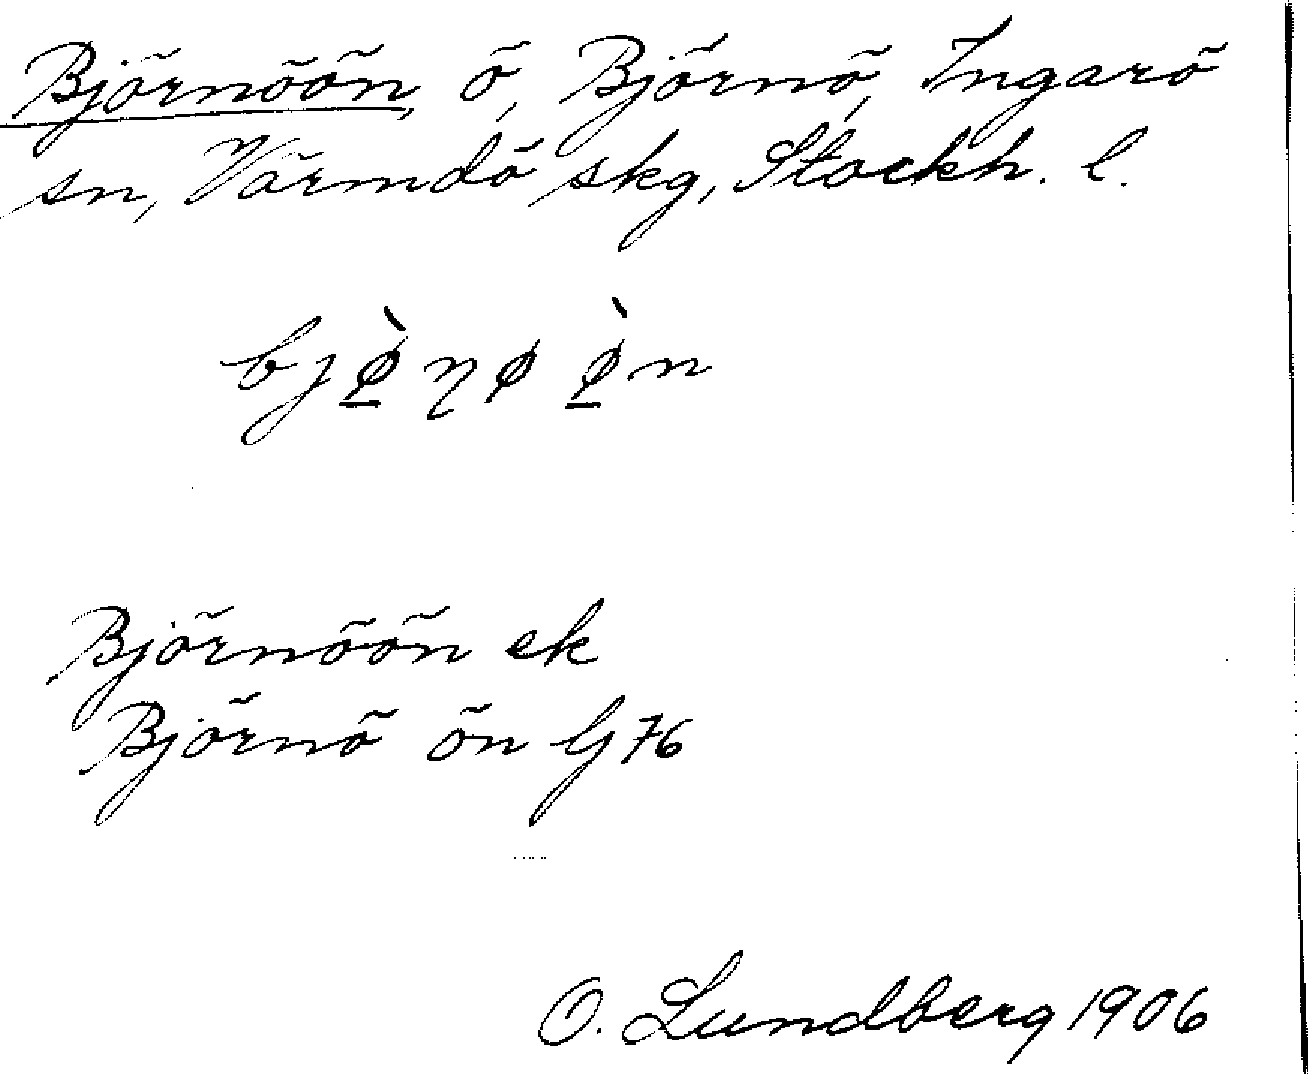 Björnöön, ö, Björnö, Ingarö
sn, Värmdö skg, Stockh. l.
bjø̲̀ŋø ø̲̀n
Björnöön ek
Björnö ön G 76
O. Lundberg 1906